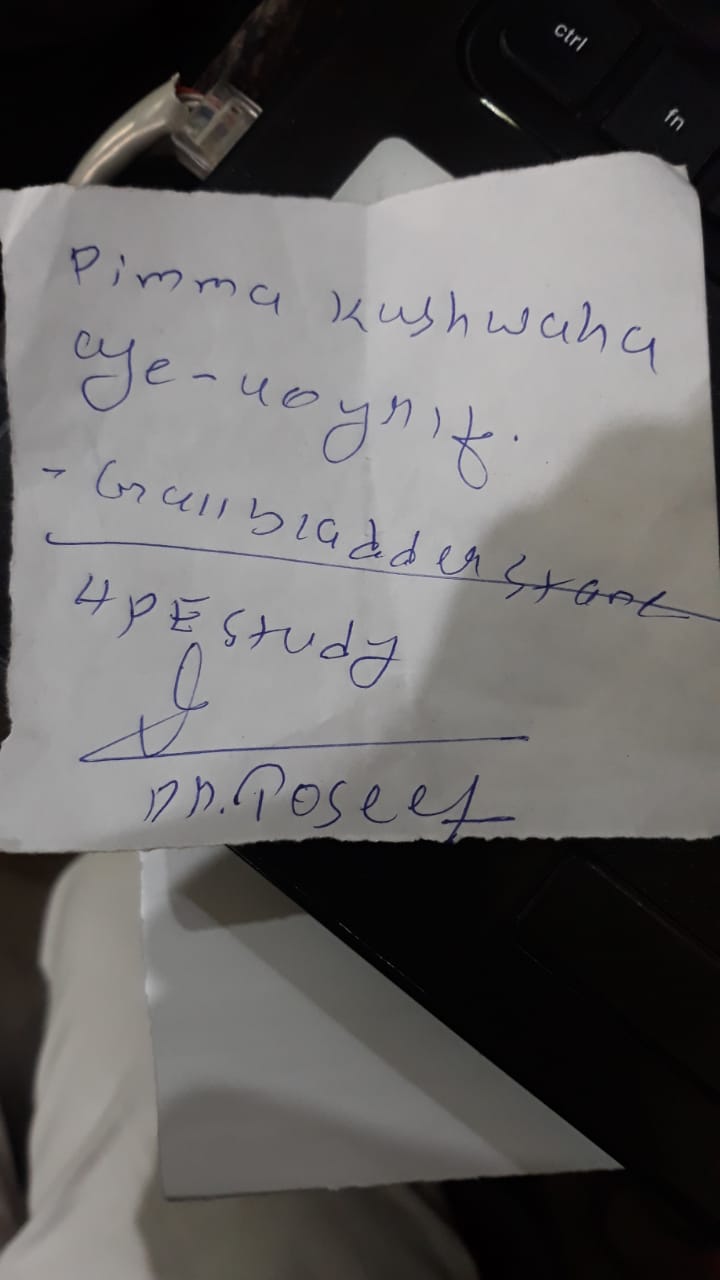 ctrl
fn
Pimma Kushwaha
aye-40yr/f.
- Gallbladder stone
HPE Study
Dr. Toseef